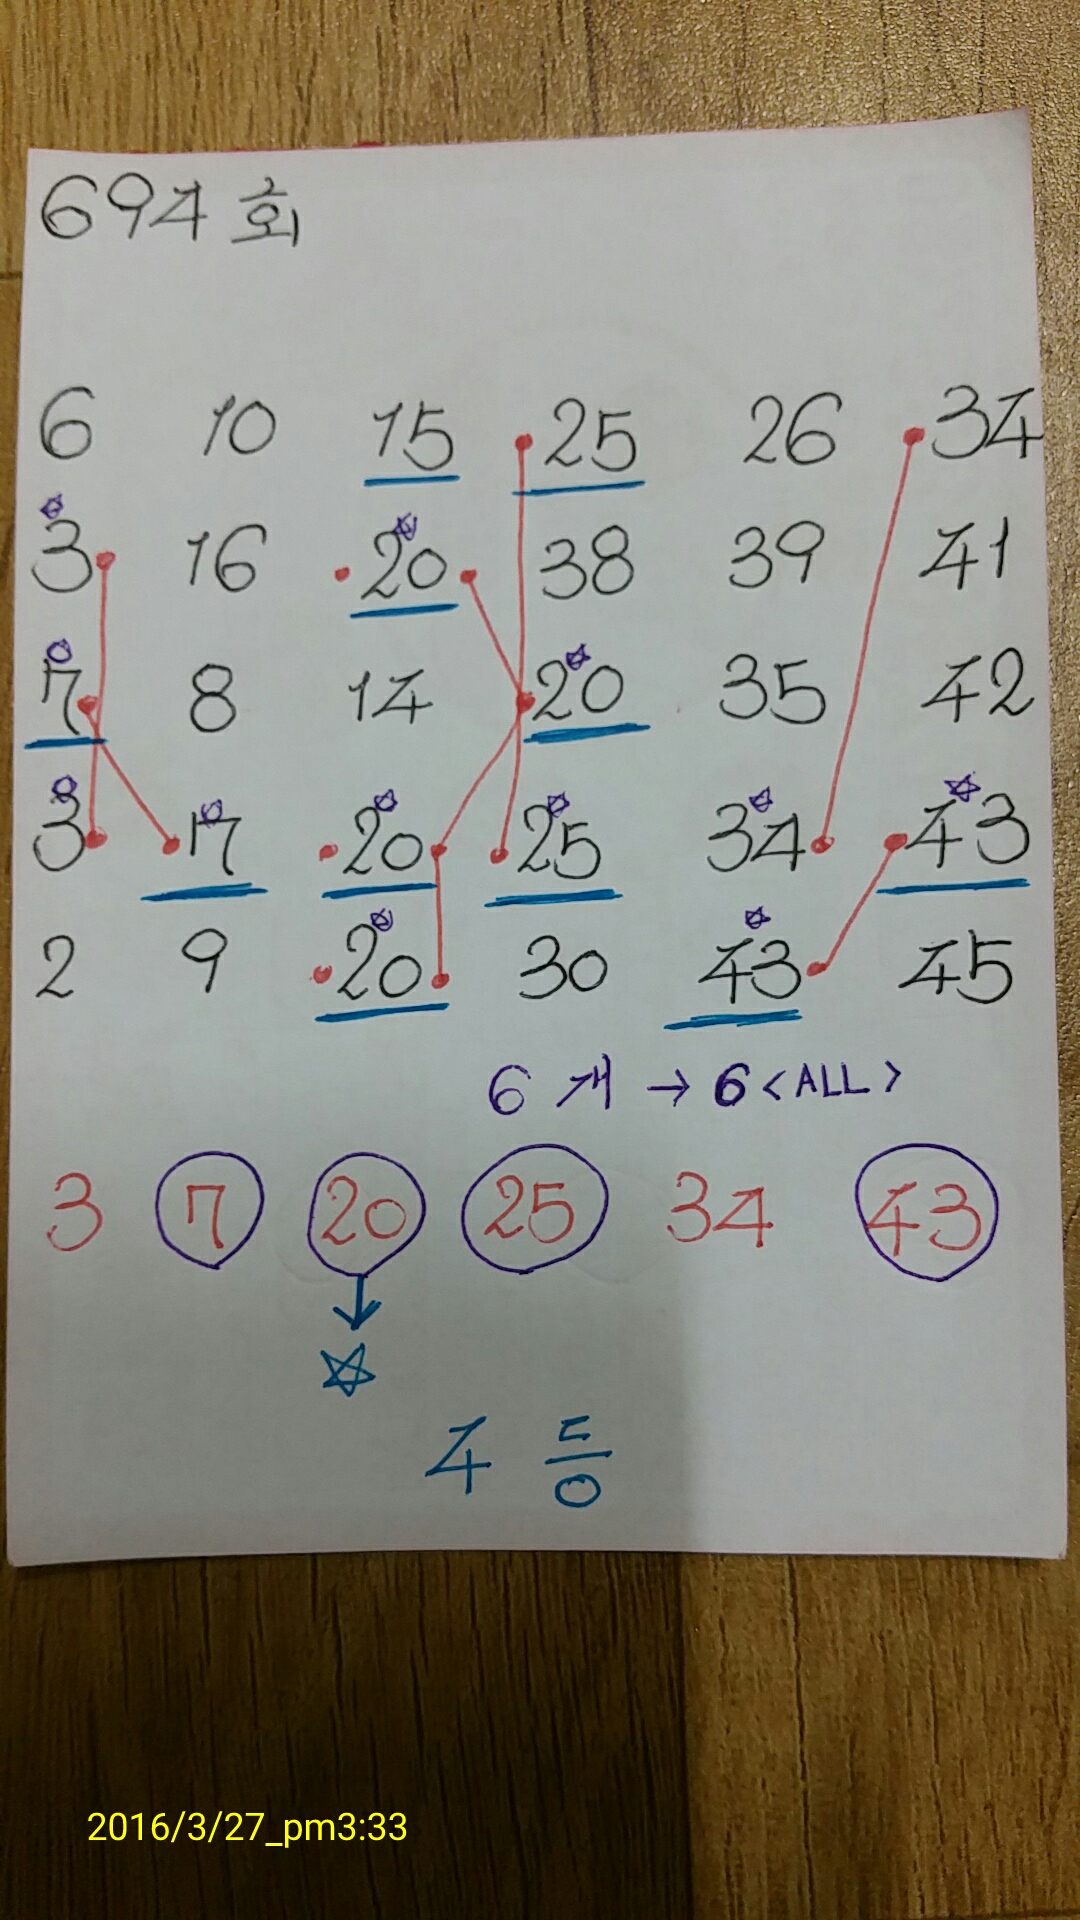 694회
6 10 15 25 26 34
3 16 20 38 39 41
7 8 14 20 35 42
3 7 20 25 34 43
2 9 20 30 43 45
6개 → 6 <ALL>
3 7 20 25 34 43
4등
2016/3/27_pm3:33